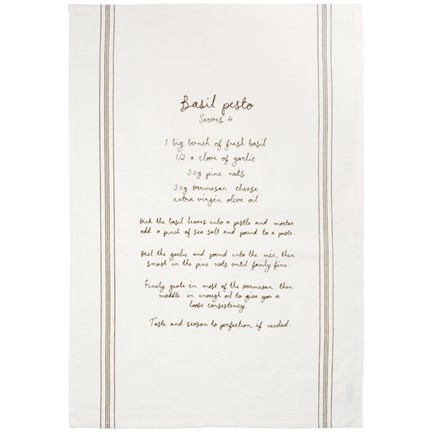 Basil pesto
Serves 4
1 big bunch of fresh basil
1/2 a clove of garlic
30g pine nuts
30g parmesan cheese
extra virgin olive oil
Pick the basil leaves into a pestle and mortar
add a pinch of sea salt and pound to a paste.
Peel the garlic and pound into the mix, then
smash in the pine nuts until fairly fine.
Finely grate in most of the parmesan then
muddle in enough oil to give you a
loose consistency.
Taste and season to perfection if needed.